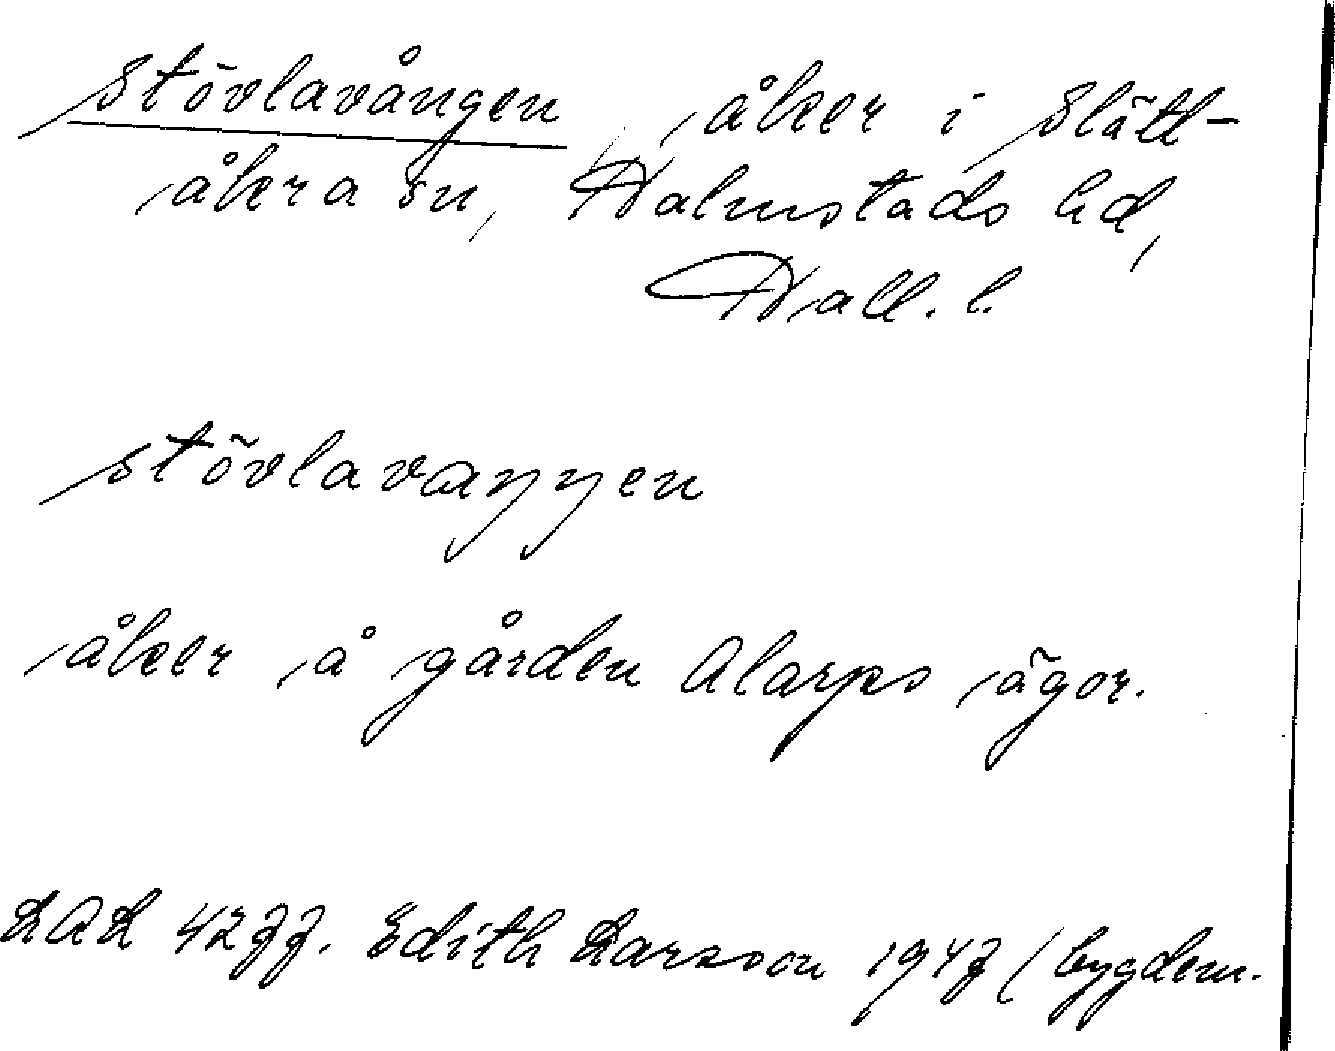 Stövlavången, åker i Slätt-
åkra sn, Halmstads hd,
Hall. l.
stövlavaŋŋen
åker å gården Alarps ägor.
LAL 4277. Edith Larsson 1947 (bygdem.